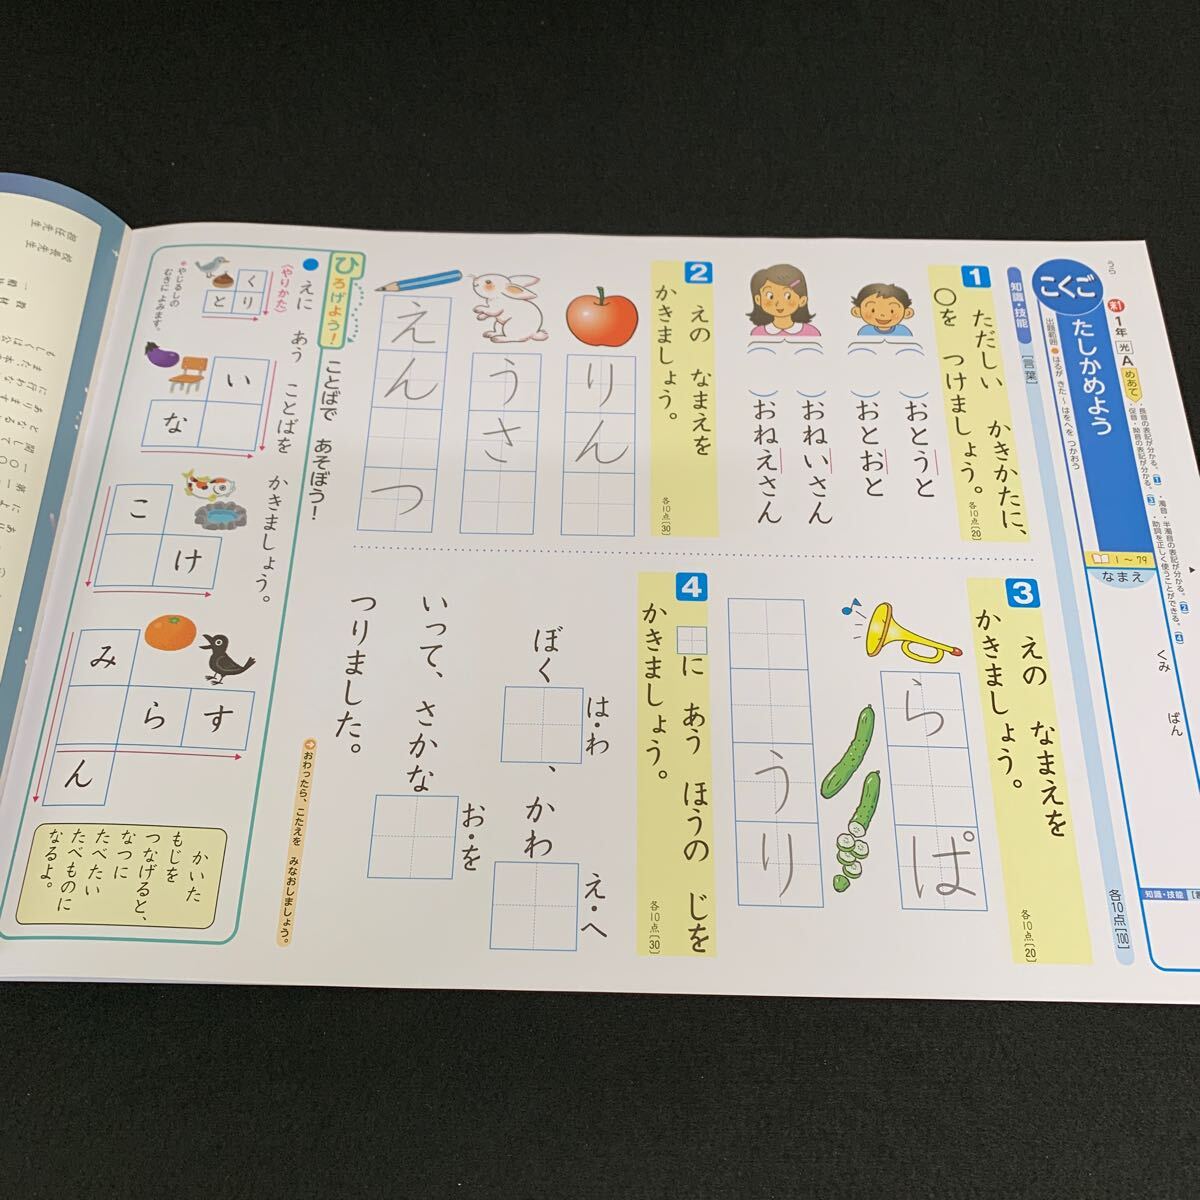 うら
こくご
新
1年
光
A
めあて
・長音の表記が分かる。(1)
・促音・拗音の表記が分かる。(3)
・濁音・半濁音の表記が分かる。(2)
・助詞を正しく使うことができる。(4)
たしかめよう
出題範囲●はるが きた～はをへを つかおう
1～79
なまえ
くみ
ばん
知識・技能
各10点[100]
知識・技能
[言葉]
1
ただしい かきかたに、
○を つけましょう。
各10点[20]
( )おとうと
( )おとおと
( )おねいさん
( )おねえさん
2
えの なまえを
かきましょう。
各10点[30]
りん
うさ
えん つ
3
えの なまえを
かきましょう。
各10点[20]
ら ぱ
うり
4
□に あう ほうの じを
かきましょう。
各10点[30]
は・わ
え・へ
ぼく□、かわ□
お・を
いって、さかな□
つりました。
ひろげよう!
ことばで あそぼう!
●えに あう ことばを かきましょう。
〈やりかた〉
くり
と
*やじるしの
むきに よみます。
い
な
こ
け
み
らす
ん
かいた
もじを
つなげると、
なつに
たべたい
たべものに
なるよ。
おわったら、こたえを みなおしましょう。
校長先生
担任先生